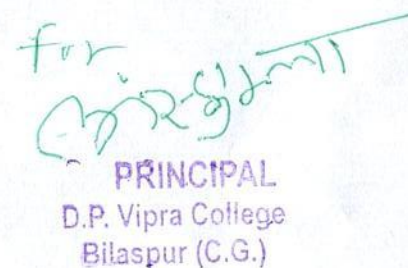 for
PRINCIPAL
D.P. Vipra College
Bilaspur (C.G.)